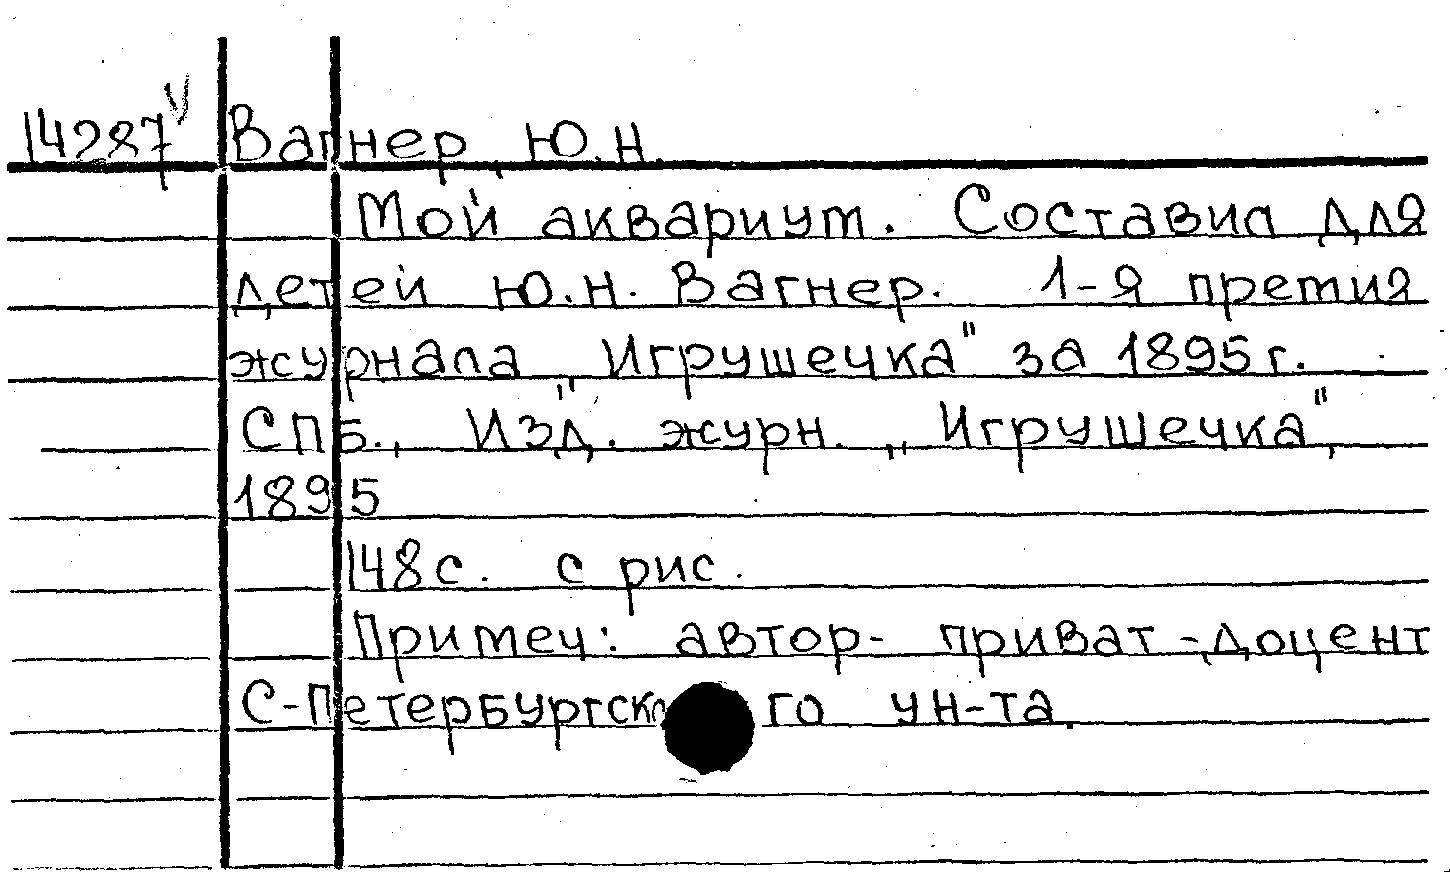 14287 v Вагнер, Ю.Н.
Мой аквариум. Составил для
детей Ю.Н. Вагнер. 1-я премия
журнала „Игрушечка" за 1895 г.
СПб., Изд. журн. „Игрушечка",
1895
148 с. с рис.
Примеч: автор- приват-доцент
С-Петербургско го ун-та.